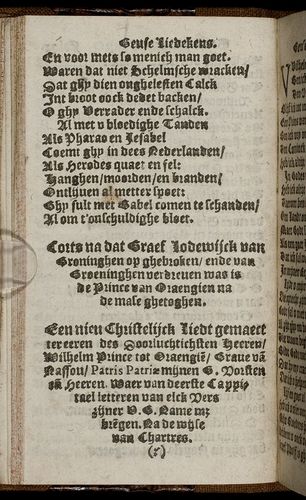 Geuse Liedekens.
En voor niets so menich man goet.
Waren dat niet Schelmsche wracken/
Dat ghy dien onghelesten Calck
Int broot oock dedet backen/
O ghy Verrader ende schalck.
Al met v bloedighe Tanden
Als Pharao en Jesabel
Coemt ghy in dees Nederlanden/
Als Herodes quaet en fel:
Hanghen/moorden/en branden/
Ontlijuen al metter spoet:
Ghy sult met Babel comen te schanden/
Al om t'onschuldighe bloet.
Corts na dat Graef Lodewijck van
Groninghen op ghebroken/ ende van
Groeninghen verdreuen was is
de Prince van Oraengien na
de mase ghetoghen.
Een nieu Christelijck Liedt gemaect
ter eeren des Doorluchtichsten Heeren/
Wilhelm Prince tot Oraengiē/ Graue vā
Nassou/ Patris Patriæ mijnen G. Vorsten
eñ Heeren. Waer van deerste Cappi,
tael letteren van elck Vers
zijner V. G. Name mz
brēgen. Na de wijse
van Chartres.